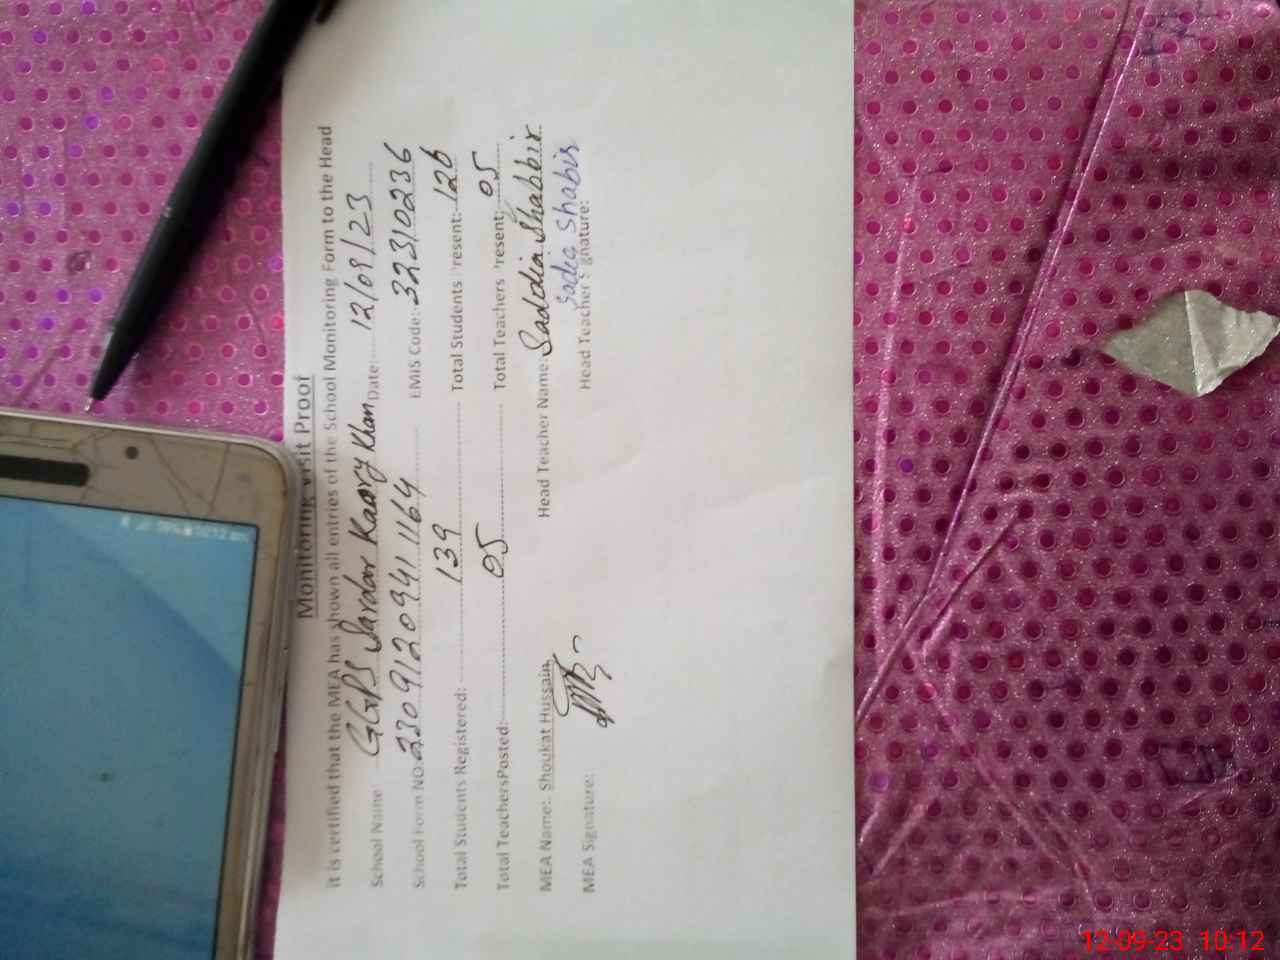 Monitoring Visit Proof
it is certified that the MEA has shown all entries of the School Monitoring Form to the Head
School Name GGPS Sardar Kaary Khan Date: 12/09/23
School Form NO: 2309120941 1164 EMIS Code: 32310236
Total Students Registered: 139 Total Students Present: 126
Total TeachersPosted: 05 Total Teachers Present: 05
MEA Name: Shoukat Hussain Head Teacher Name: Saddia Shabbir
MEA Signature: Head Teacher Signature: Sadia Shabir
12-09-23 10:12